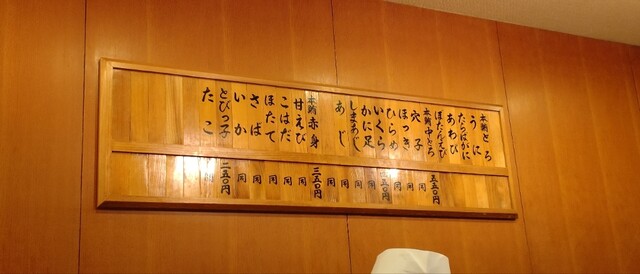 本鮪とろ
うに
たらばがに
あわび
ぼたんえび
本鮪中とろ
穴子
ほっき
ひらめ
いくら
かに足
しまあじ
あじ
本鮪赤身
甘えび
こはだ
ほたて
さば
いか
とびっ子
たこ
五五〇円
同
同
同
五〇円
同
同
同
同
三五〇円
同
同
同
同
同
二五〇円